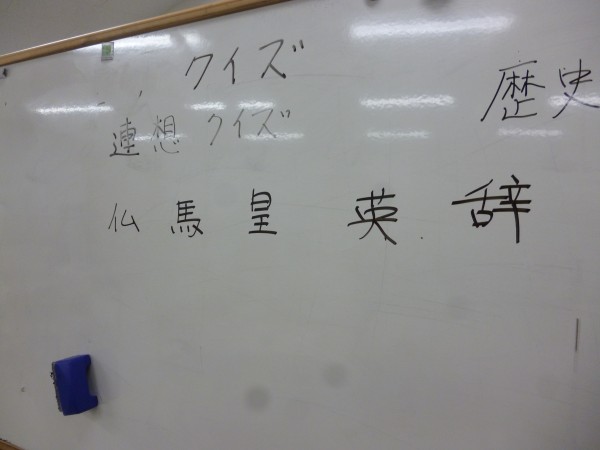 クイズ
歴史
連想 クイズ
仏 馬 皇 英 辞